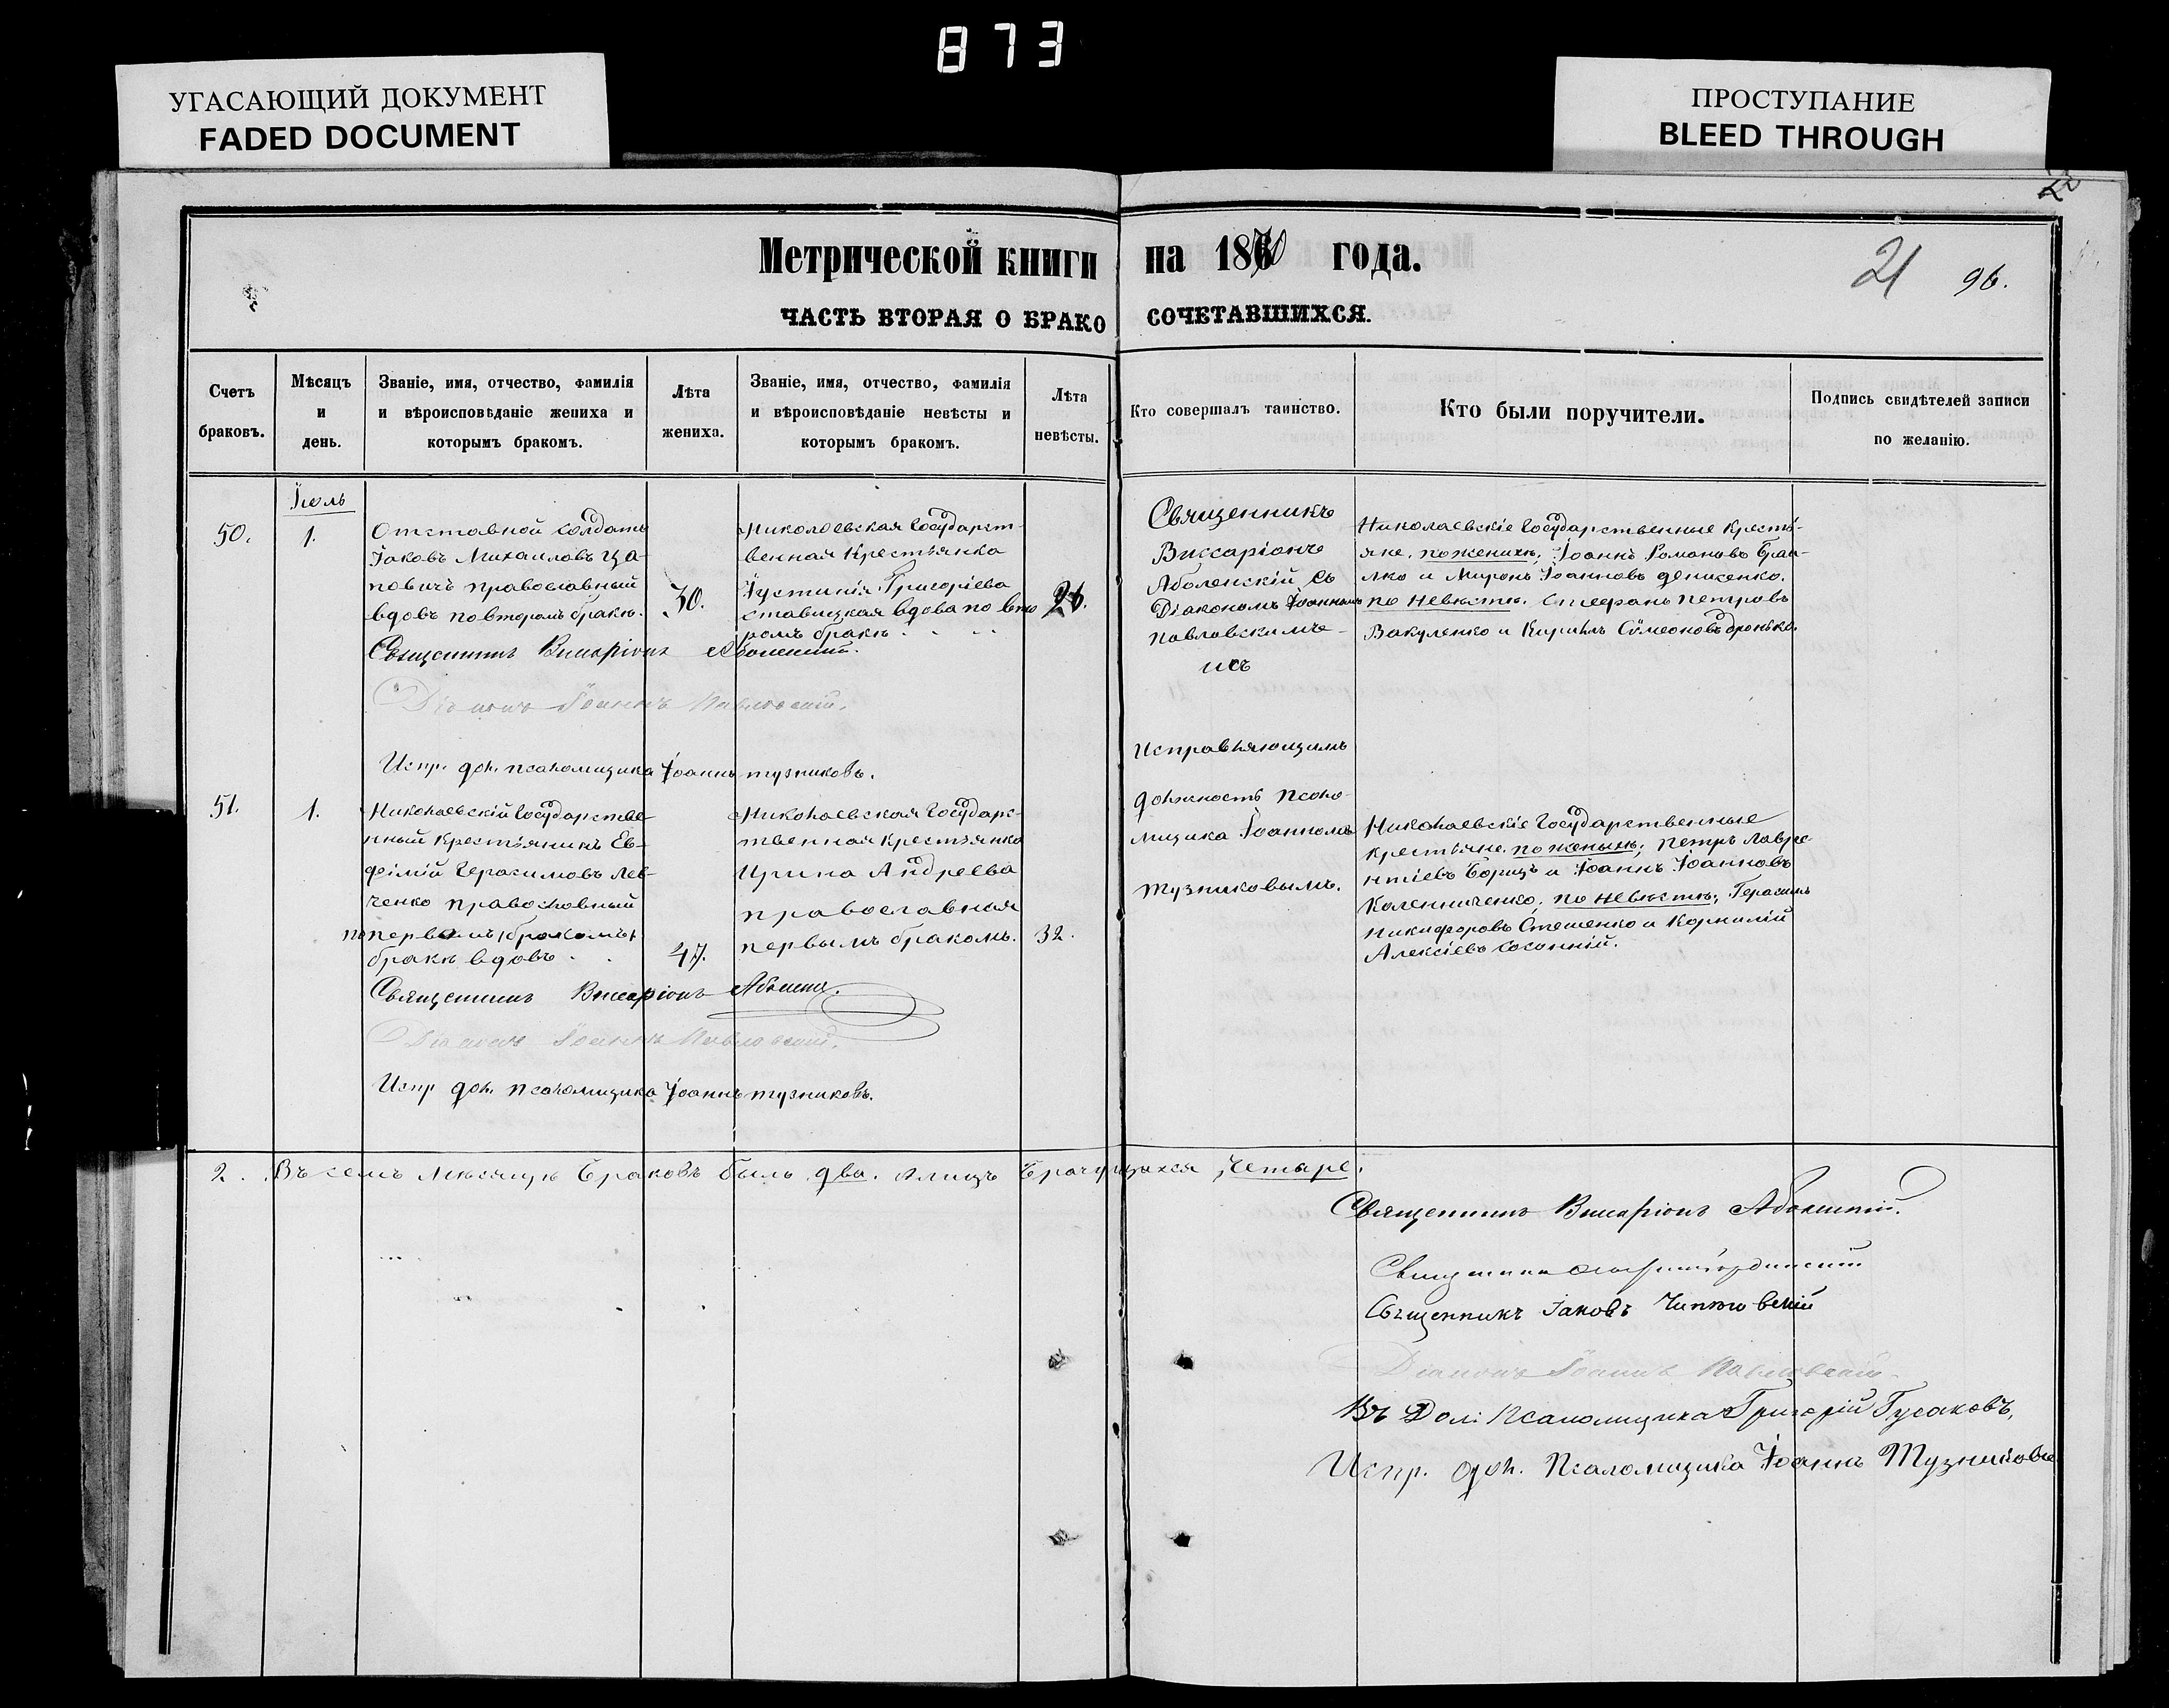 873
УГАСАЮЩИЙ ДОКУМЕНТ
FADED DOCUMENT
ПРОСТУПАНИЕ
BLEED THROUGH
22
Метрической книги на 1870 года.
21 96.
ЧАСТЬ ВТОРАЯ О БРАКОСОЧЕТАВШИХСЯ.
Счетъ браковъ.
Мѣсяцъ и день.
Званіе, имя, отчество, фамилія
и вѣроисповѣданіе жениха и
которымъ бракомъ.
Лѣта жениха.
Званіе, имя, отчество, фамилія
и вѣроисповѣданіе невѣсты и
которымъ бракомъ.
Лѣта невѣсты.
Кто совершалъ таинство.
Кто были поручители.
Подпись свидѣтелей записи
по желанію.
Іюль
50.
1.
Отставной солдатъ
Іаковъ Михаиловъ Ца-
повичъ православный
вдовъ по второмъ бракѣ.
30.
Николаевская Государст-
венная Крестьянка
Іустинія Григоріева
Ставицкая вдова по вто
ромъ бракѣ.
Священникъ
Виссаріонъ
Аболенскій съ
Діакономъ Іоанномъ
Павловскимъ
Николаевскіе Государственные Кресть-
яне, по женихѣ, Іоаннъ Романовъ
и Миронъ Іоанновъ Денисенко.
по невѣстѣ. Стефанъ Петровъ
Вакуленко и Кирилъ Сѵмеоновъ
Священникъ Виссаріонъ Аболенскій.
Діаконъ Іоаннъ Павловскій.
Испр. дол. псаломщика Іоаннъ Тузниковъ.
Исправляющимъ
должность псало-
мщика Іоанномъ
Тузниковымъ.
51.
1.
Николаевскій Государстве-
нный Крестьянинъ Ев-
фимій Герасимовъ Лев-
ченко православный
по первомъ
бракѣ вдовъ
47.
Николаевская Государс-
твенная Крестьянка
Ирина Андреева
православная
первымъ бракомъ.
32.
Николаевскіе Государственные
крестьяне. по женихѣ; Петръ Лавре-
нтіевъ Борищъ и Іоаннъ Іоанновъ
Калениченко, по невѣстѣ, Герасимъ
Никифоровъ Стешенко и Корнилій
Алексіевъ
Священникъ Виссаріонъ
Діаконъ Іоаннъ Павловскій.
Испр дол. псаломщика Іоаннъ Тузниковъ.
2. Въ семъ мѣсяцѣ браковъ было два. А лицъ брачущихся четыре.
Священникъ Виссаріонъ Аболенскій.
Священникъ
Священникъ Іаковъ
Діаконъ Іоаннъ Павловскій.
Въ Дол: Псаломщика Григорій Гусаковъ,
Испр. дол. Псаломщика Іоаннъ Тузниковъ